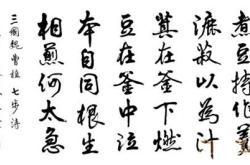 煮豆持作羹
漉菽以為汁
萁在釜下燃
豆在釜中泣
本自同根生
相煎何太急
三國魏 曹植 七步詩